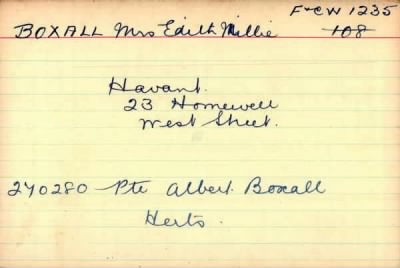 F+CW 1235
BOXALL Mrs Edith Millie 108
Havant.
23 Homewell
West Street.
270280 Pte Albert Boxall
Herts.